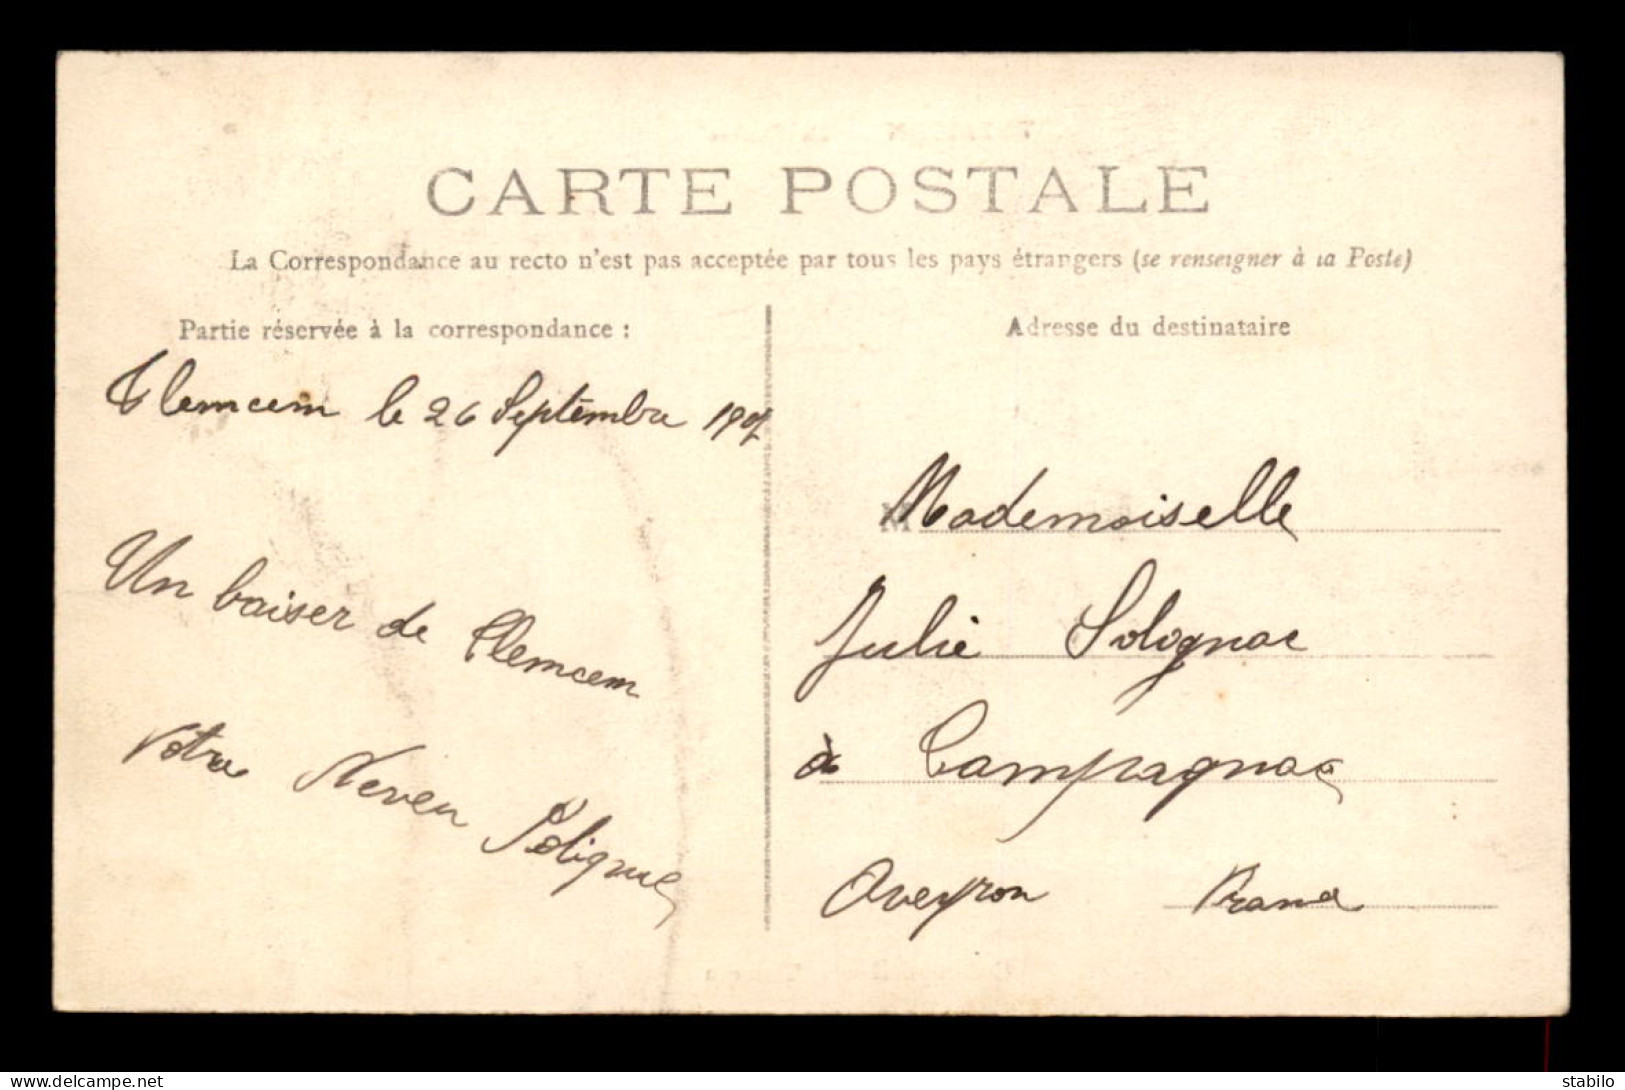 CARTE POSTALE
La Correspondance au recto n'est pas acceptée par tous les pays étrangers (se renseigner à la Poste)
Partie réservée à la correspondance :
Tlemcem le 26 Septembre
Un baiser de Tlemcem
Votre Neveu
Adresse du destinataire
Mademoiselle
Julie Solognac
à Campagnac
Aveyron France
delcampe.net
stabilo